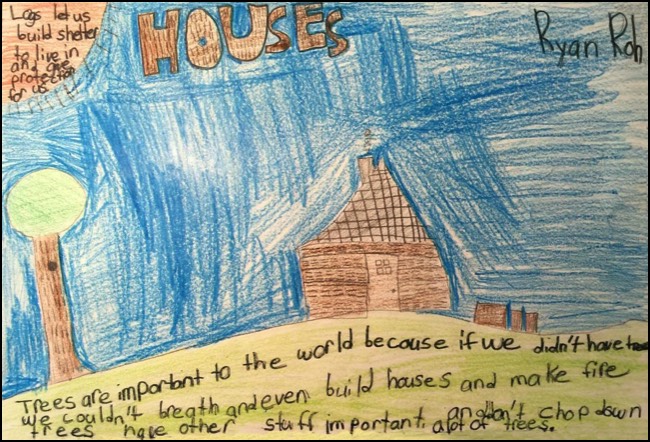 Logs let us
build shelter
to live in
and give
protection
for us.
HOUSES
Ryan Roh
Trees are important to the world because if we didn't have trees
we couldn't breath and even build houses and make fire
trees have other stuff important. and don't chop down
a lot of trees.